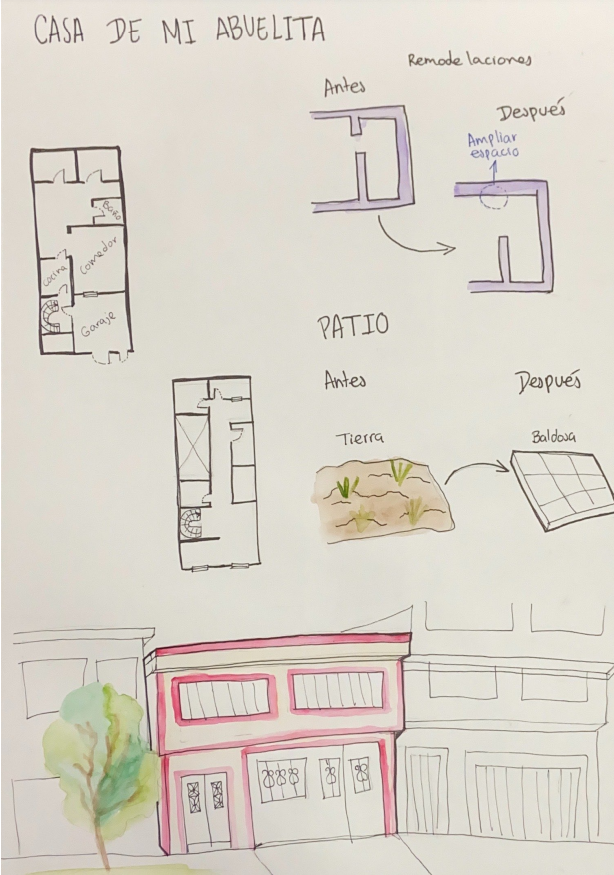 CASA DE MI ABUELITA
Remodelaciones
Antes
Después
Ampliar
espacio
Baño
Comedor
Cocina
Garaje
PATIO
Antes
Después
Tierra
Baldosa